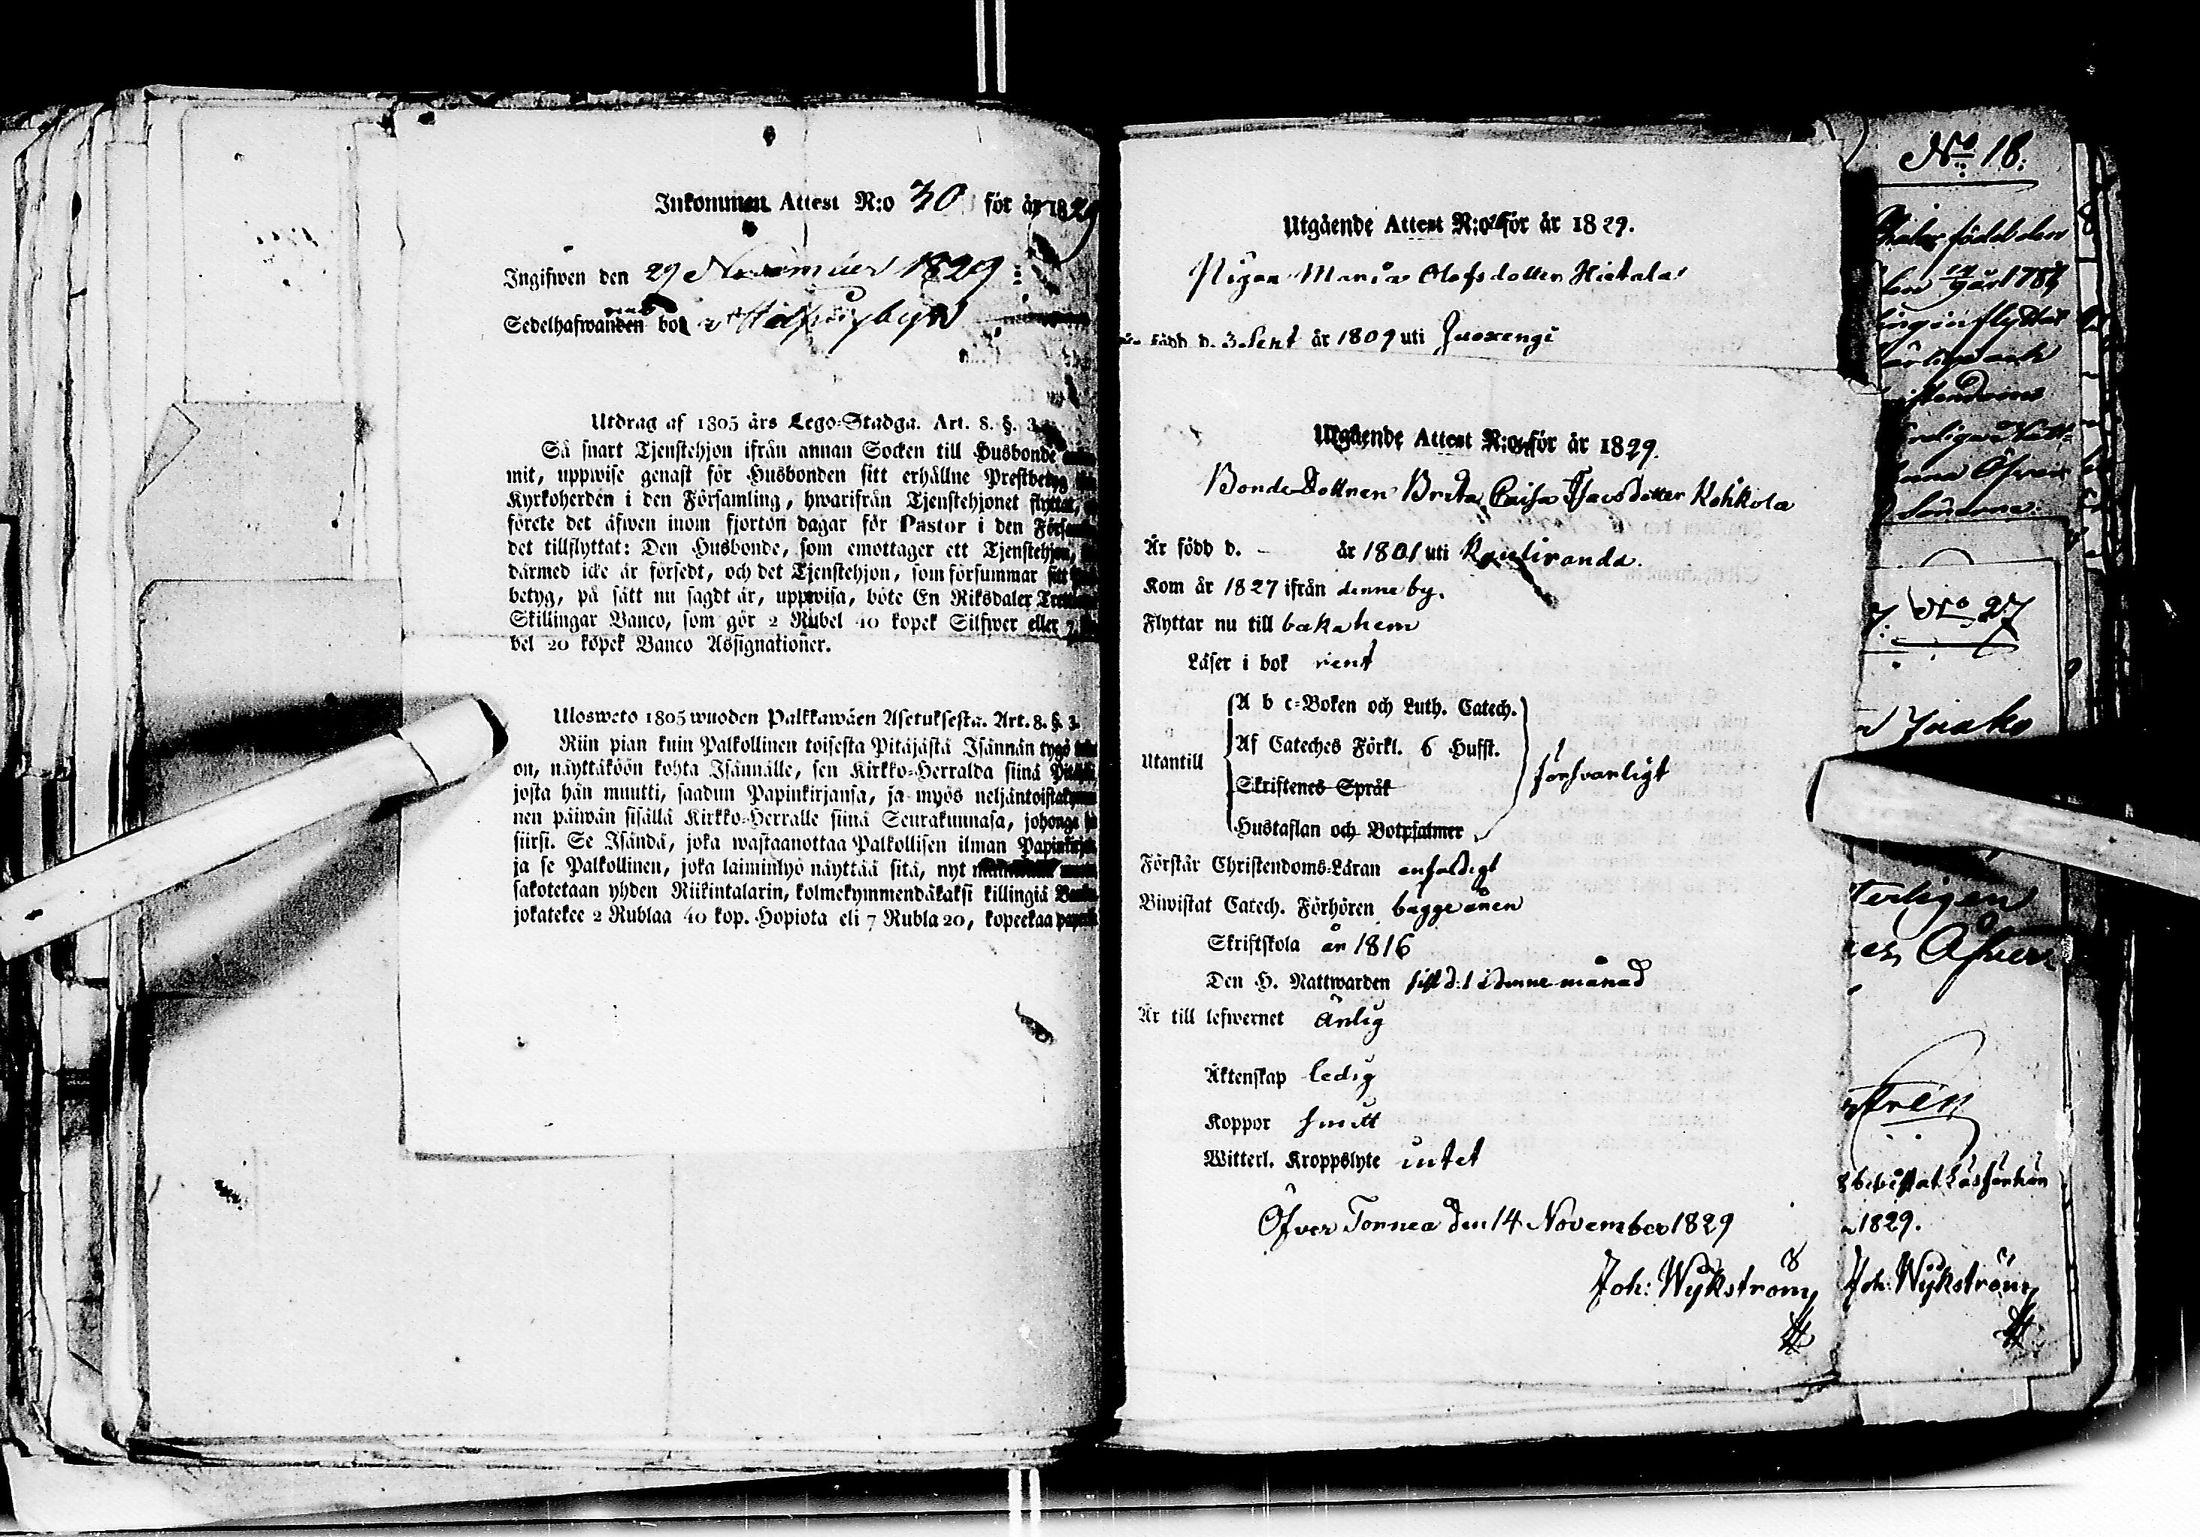 Inkommen Attest N:o 30 för år 1829
Ingifwen den 29 November 1829
Sedelhafwanden bor
Utdrag af 1805 års Lego-Stadga. Art. 8. §. 3.
Så snart Tjenstehjon ifrån annan Socken till Husbonde
mit, uppwise genast för Husbonden sitt erhållne Prestbetyg
Kyrkoherden i den Församling, hwarifrån Tjenstehjonet flyttat,
förete det äfwen inom fjorton dagar för Pastor i den
det tillflyttat: Den Husbonde, som emottager ett Tjenstehjon,
därmed icke är försedt, och det Tjenstehjon, som försummar sitt
betyg, på sätt nu sagdt är, uppwisa, böte En Riksdaler
Skillingar Banco, som gör 2 Rubel 40 kopek Silfwer eller 7
bel 20 kopek Banco Assignationer.
Ulosweto 1805 wuoden Palkkawäen Asetuksesta. Art. 8. §. 3.
Niin pian kuin Palkollinen toisesta Pitäjästä Isännän tygö
on, näyttäköön kohta Isännälle, sen Kirkko-Herralda siinä
josta hän muutti, saadun Papinkirjansa, ja myös
nen päiwän sisällä Kirkko-Herralle siinä Seurakunnasa, johonga
siirsi. Se Isändä, joka wastaanottaa Palkollisen ilman
ja se Palkollinen, joka laiminlyö näyttää sitä, nyt
sakotetaan yhden Riikintalarin, kolmekymmendäkaksi killingiä
jokatekee 2 Rublaa 40 kop. Hopiota eli 7 Rubla 20, kopeekaa
Utgående Attest N:o för år 1829.
Pigan Maria Olofsdotter Hietala
född d. 3 Sept år 1809 uti Juoxengi
Utgående Attest N:o för år 1829.
Bonde Dottren Breta Caisa Isacsdotter Kohkola
Är född d. - år 1801 uti Kauliranda.
Kom år 1827 ifrån denne by.
Flyttar nu till baka hem
Läser i bok rent
Utantill
A b c-Boken och Luth. Catech.
Af Cateches Förkl. 6 Hufst.
Skriftenes Språk
Hustaflan och Botpsalmer
försvarligt
Förstår Christendoms-Läran enfaldigt
Biwistat Catech. Förhören bägge åren
Skriftskola år 1816
Den H. Nattwarden sist d. 1 i denne månad
Är till lefwernet Ärlig
Äktenskap ledig
Koppor haft
Witterl. Kroppslyte intet
Öfver Tornea den 14 November 1829
Joh: Wykström
No 18.
född den
1784
inflyttat
No 27
Jaako
Öfver
bevistat Läsförhör
1829.
Joh: Wykström